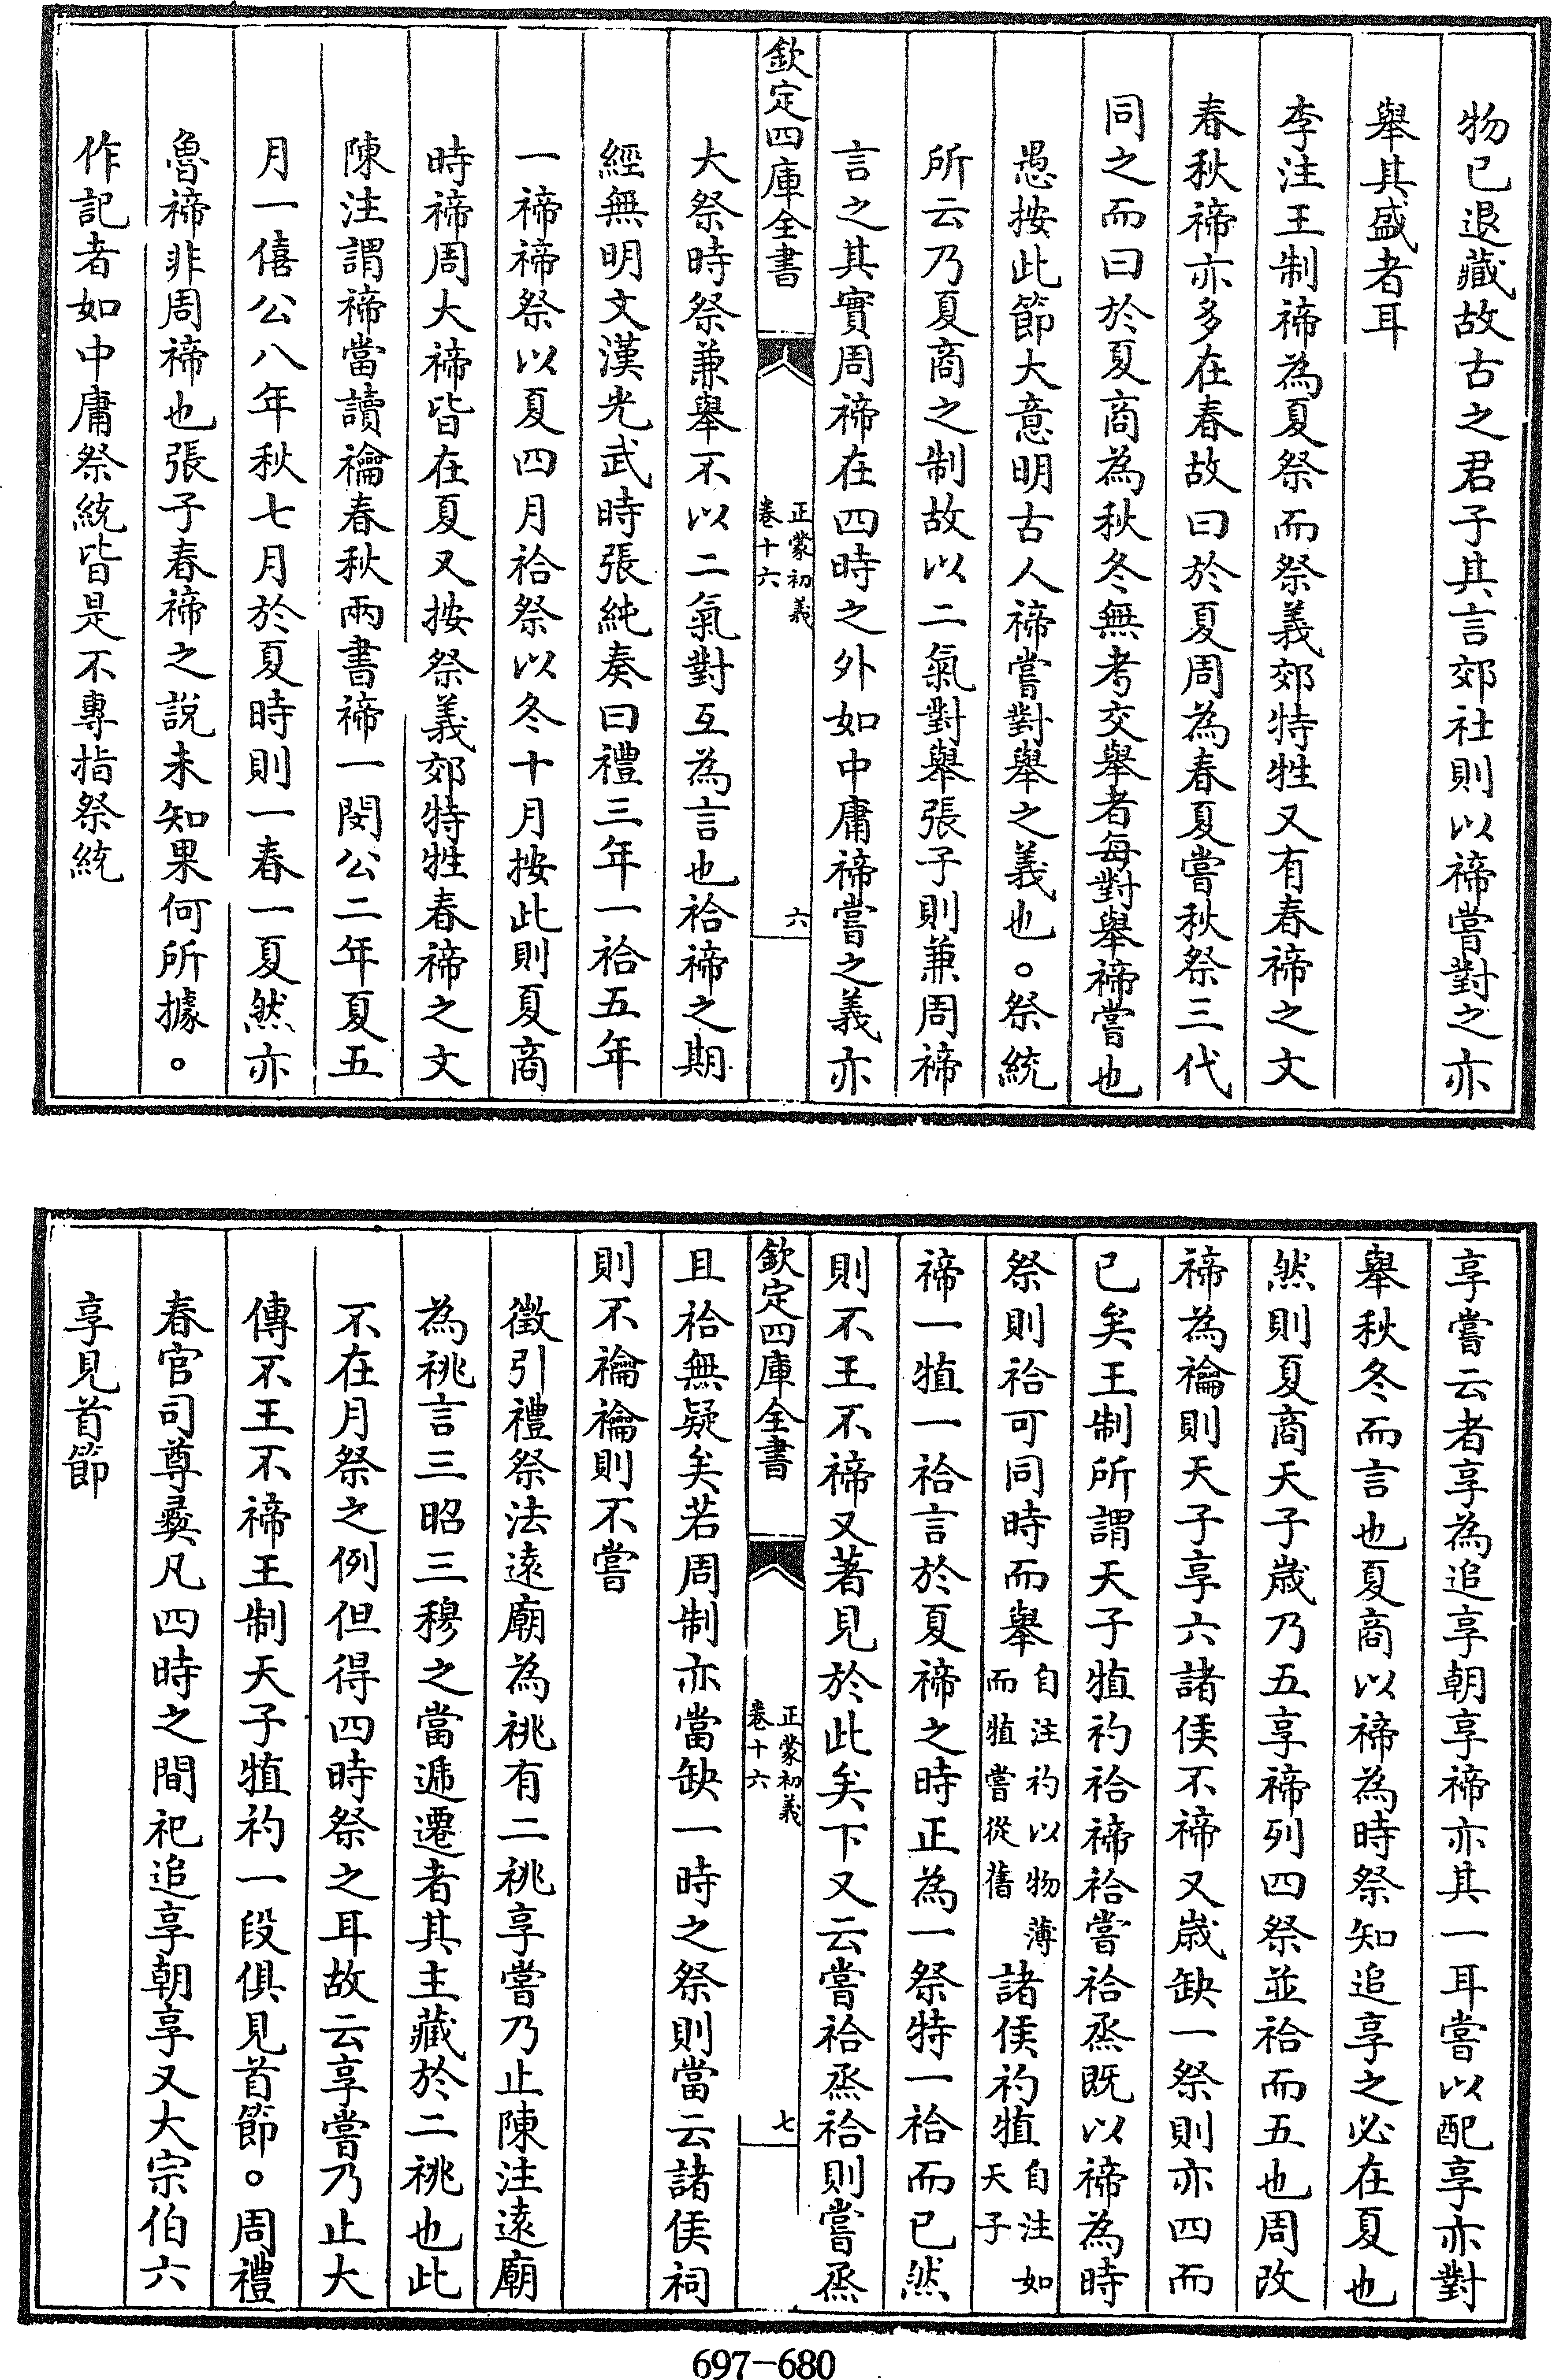 物已退藏故古之君子其言郊社則以禘嘗對之亦
舉其盛者耳
李注王制禘為夏祭而祭義郊特牲又有春禘之文
春秋禘亦多在春故曰於夏周為春夏嘗秋祭三代
同之而曰於夏商為秋冬無考交舉者每對舉禘嘗也
愚按此節大意明古人禘嘗對舉之義也。祭統
所云乃夏商之制故以二氣對舉張子則兼周禘
言之其實周禘在四時之外如中庸禘嘗之義亦
欽定四庫全書
正蒙初義
卷十六
六
大祭時祭兼舉不以二氣對互為言也祫禘之期
經無明文漢光武時張純奏曰禮三年一祫五年
一禘禘祭以夏四月祫祭以冬十月按此則夏商
時禘周大禘皆在夏又按祭義郊特牲春禘之文
陳注謂禘當讀禴春秋兩書禘一閔公二年夏五
月一僖公八年秋七月於夏時則一春一夏然亦
魯禘非周禘也張子春禘之說未知果何所據。
作記者如中庸祭統皆是不專指祭統
享嘗云者享為追享朝享禘亦其一耳嘗以配享亦對
舉秋冬而言也夏商以禘為時祭知追享之必在夏也
然則夏商天子歲乃五享禘列四祭並祫而五也周改
禘為禴則天子享六諸侯不禘又歲缺一祭則亦四而
已矣王制所謂天子犆礿祫禘祫嘗祫烝既以禘為時
祭則祫可同時而舉自注礿以物薄而犆嘗從舊諸侯礿犆自注如天子
禘一犆一祫言於夏禘之時正為一祭特一祫而已然
則不王不禘又著見於此矣下又云嘗祫烝祫則嘗烝
欽定四庫全書
正蒙初義
卷十六
七
且祫無疑矣若周制亦當缺一時之祭則當云諸侯祠
則不禴禴則不嘗
徵引禮祭法遠廟為祧有二祧享嘗乃止陳注遠廟
為祧言三昭三穆之當遞遷者其主藏於二祧也此
不在月祭之例但得四時祭之耳故云享嘗乃止大
傳不王不禘王制天子犆礿一段俱見首節。周禮
春官司尊彝凡四時之間祀追享朝享又大宗伯六
享見首節
697-680